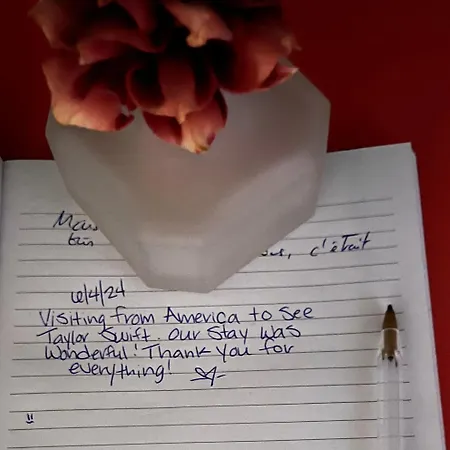 c'était
6/4/24
Visiting from America to see
Taylor Swift. Our stay was
wonderful! Thank you for
everything!